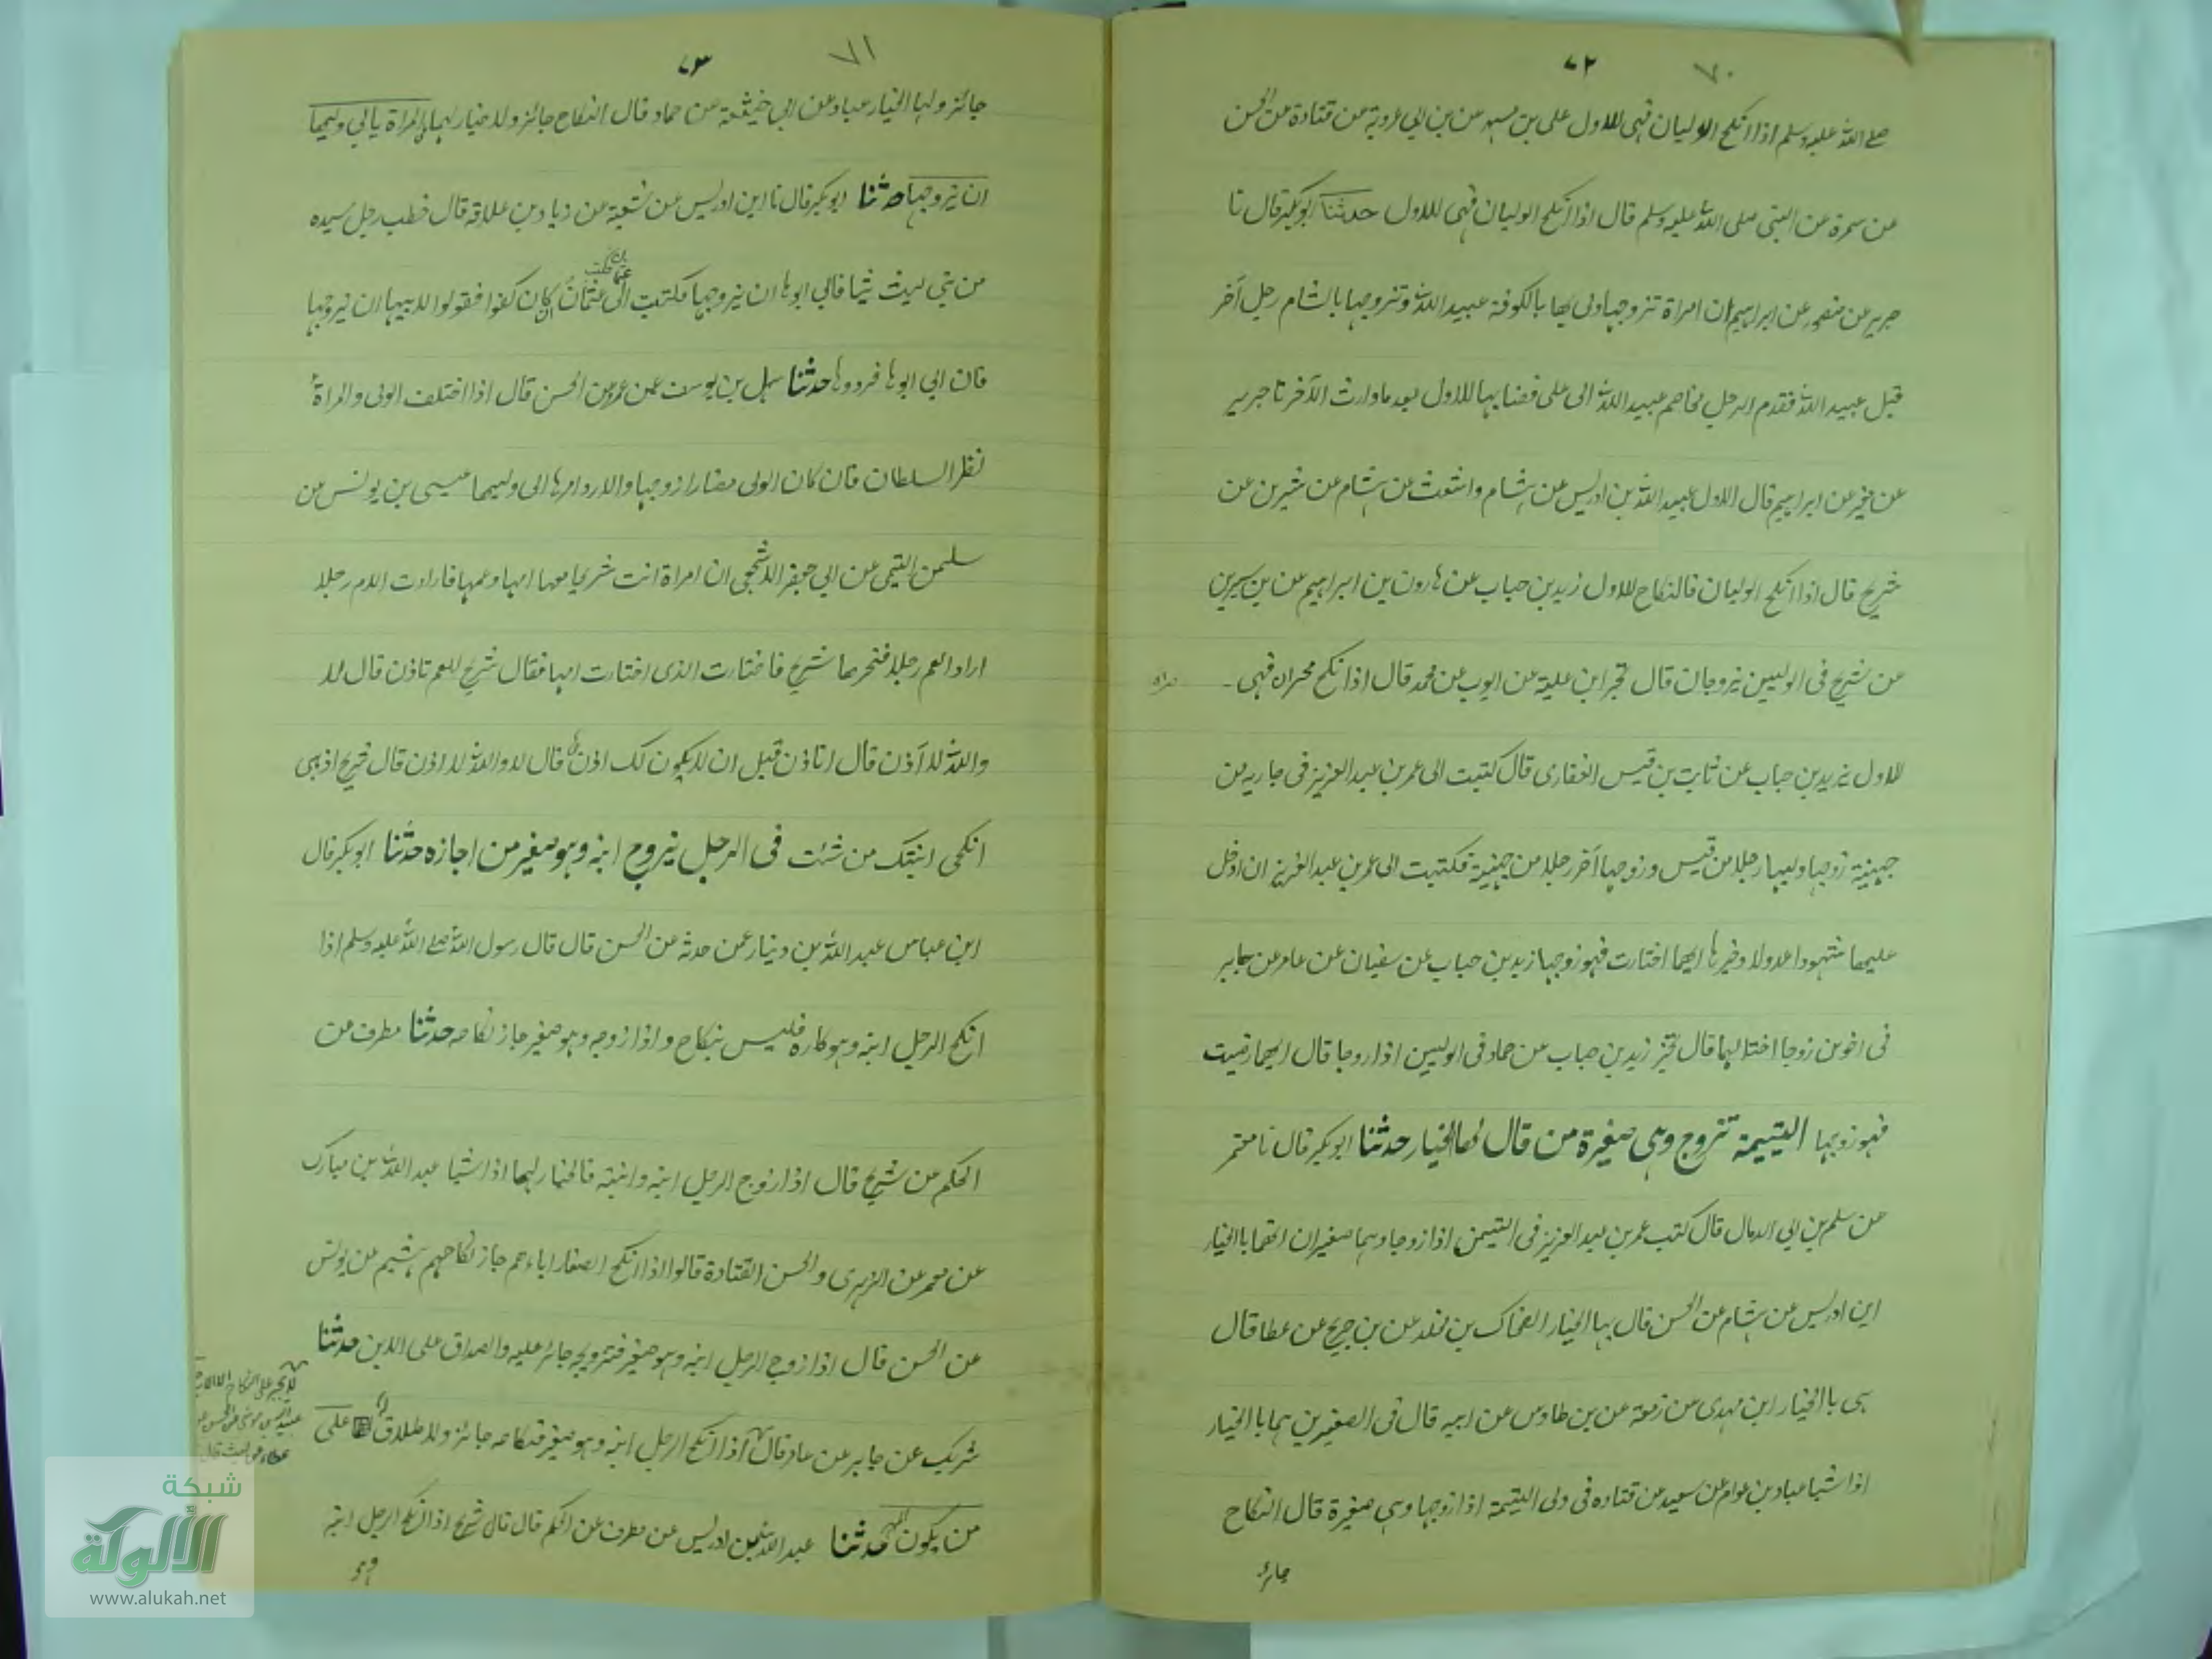 ٧٠
٧٢
صلے اللہ علیہ وسلم اذا انکح الولیان فہی للاول علی بن مسہر عن بن ابی عروبۃ عن قتادۃ عن الحسن
عن سمرۃ عن النبی صلی اللہ علیہ وسلم قال اذا انکح الولیان فہی للاول حدثنا ابوبکر قال نا
جریر عن منصور عن ابراہیم ان امراۃ تزوجہا ولی بھا بالکوفۃ عبید اللہ وتزوجہا بالشام رجل آخر
قبل عبید اللہ فقدم الرجل فخاصم عبید اللہ الی علی فقضا بہا للاول بعد ما ولدت الآخر نا جریر
عن مغیر عن ابراہیم قال الاول عبید اللہ بن ادریس عن ہشام واشعث عن ہشام عن سیرین عن
شریح قال اذا انکح الولیان فالنکاح للاول زید بن حباب عن ہارون بن ابراہیم عن بن سیرین
عن شریح فی الولیین یزوجان قال تخیر ابن علیۃ عن ایوب عن محمد قال اذا نکح محرزان فہی ـ
للاول یزید بن حباب عن ثابت بن قیس الغفاری قال کتبت الی عمر بن عبد العزیز فی جاریہ من
جہینۃ زوجہا ولیہا رجلا من قیس وزوجہا آخر رجلا من جہینۃ فکتبت الی عمر بن عبد العزیز ان ادخل
علیھا شہودا عدولا وخیرہا ایھما اختارت فہو زوجہا زید بن حباب عن سفیان عن عامر عن جابر
فی اخوین زوجا اختا لہما قال تخیر زید بن حباب عن حماد فی الولیین اذا زوجا قال ایھما رضیت
فہو زوجہا الیتیمۃ تزوج وہی صغیرۃ من قال لھا الخیار حدثنا ابوبکر قال نا معتمر
عن سلم بن ابی الدمال قال کتب عمر بن عبد العزیز فی الیتیمین اذا زوجا وہما صغیران انھما بالخیار
ابن ادریس عن ہشام عن الحسن قال بہا الخیار الضحاک بن مخلد عن بن جریج عن عطا قال
ہی بالخیار ابن مہدی عن زمعۃ عن بن طاوس عن ابیہ قال فی الصغیرین ہما بالخیار
اذا شبا عباد بن عوام عن سعید عن قتادہ فی ولی الیتیمۃ اذا زوجہا وہی صغیرۃ قال النکاح
جائز
٧١
٧٣
جائز ولہا الخیار عباد عن ابی خیثمۃ عن حماد قال النکاح جائز ولا خیار لہا المراۃ یابی ولیھا
ان یزوجہا حدثنا ابوبکر قال نا ابن ادریس عن شعبۃ عن زیاد بن علاقۃ قال خطب رجل سیدہ
من بنی لیث ثیبا فابی ابوہا ان یزوجہا فکتبت الی عثمان ان کان کفوا فقولوا لابیہا ان یزوجہا
فان ابی ابوہا فزوجوہا حدثنا سہل بن یوسف عن عمرو عن الحسن قال اذا اختلف الولی والمراۃ
نظر السلطان فان کان الولی مضارا زوجہا والا رد امرہا الی ولیھا عیسی بن یونس عن
سلیمن التیمی عن ابی جعفر الاشجعی ان امراۃ اتت شریحا معہا امہا وعمہا فارادت الام رجلا
اراد العم رجلا فخیرھا شریح فاختارت الذی اختارت امہا فقال شریح للعم تاذن قال لا
واللہ لا آذن قال اتاذن قبل ان لا یکون لک اذن قال لا واللہ لا اذن قال شریح اذہبی
انکحی ابنتک من شئت فی الرجل یزوج ابنہ وہو صغیر من اجازہ حدثنا ابوبکر قال
ابن عباس عبد اللہ بن دینار عمن حدثہ عن الحسن قال قال رسول اللہ صلے اللہ علیہ وسلم اذا
انکح الرجل ابنہ وہو کارہ فلیس بنکاح واذا زوجہ وہو صغیر جاز نکاحہ حدثنا مطرف عن
الحکم عن شریح قال اذا زوج الرجل ابنہ وابنتہ فالخیار لہما اذا شبا عبد اللہ بن مبارک
عن معمر عن الزہری والحسن القتادۃ قالوا اذا انکح الصغار اباءھم جاز نکاحہم ہشیم عن یونس
عن الحسن قال اذا زوج الرجل ابنہ وہو صغیر فتزویجہ جائز علیہ والصداق علی الابن حدثنا
شریک عن جابر عن عامر قال اذا انکح الرجل ابنہ وہو صغیر فنکاحہ جائز ولا طلاق لہ علی
من یکون المہر حدثنا عبد اللہ بن ادریس عن مطرف عن الحکم قال قال شریح اذا انکح الرجل ابنہ
وہو
لا یجبر علی النکاح الا الاب
شبكة
الألوكة
www.alukah.net